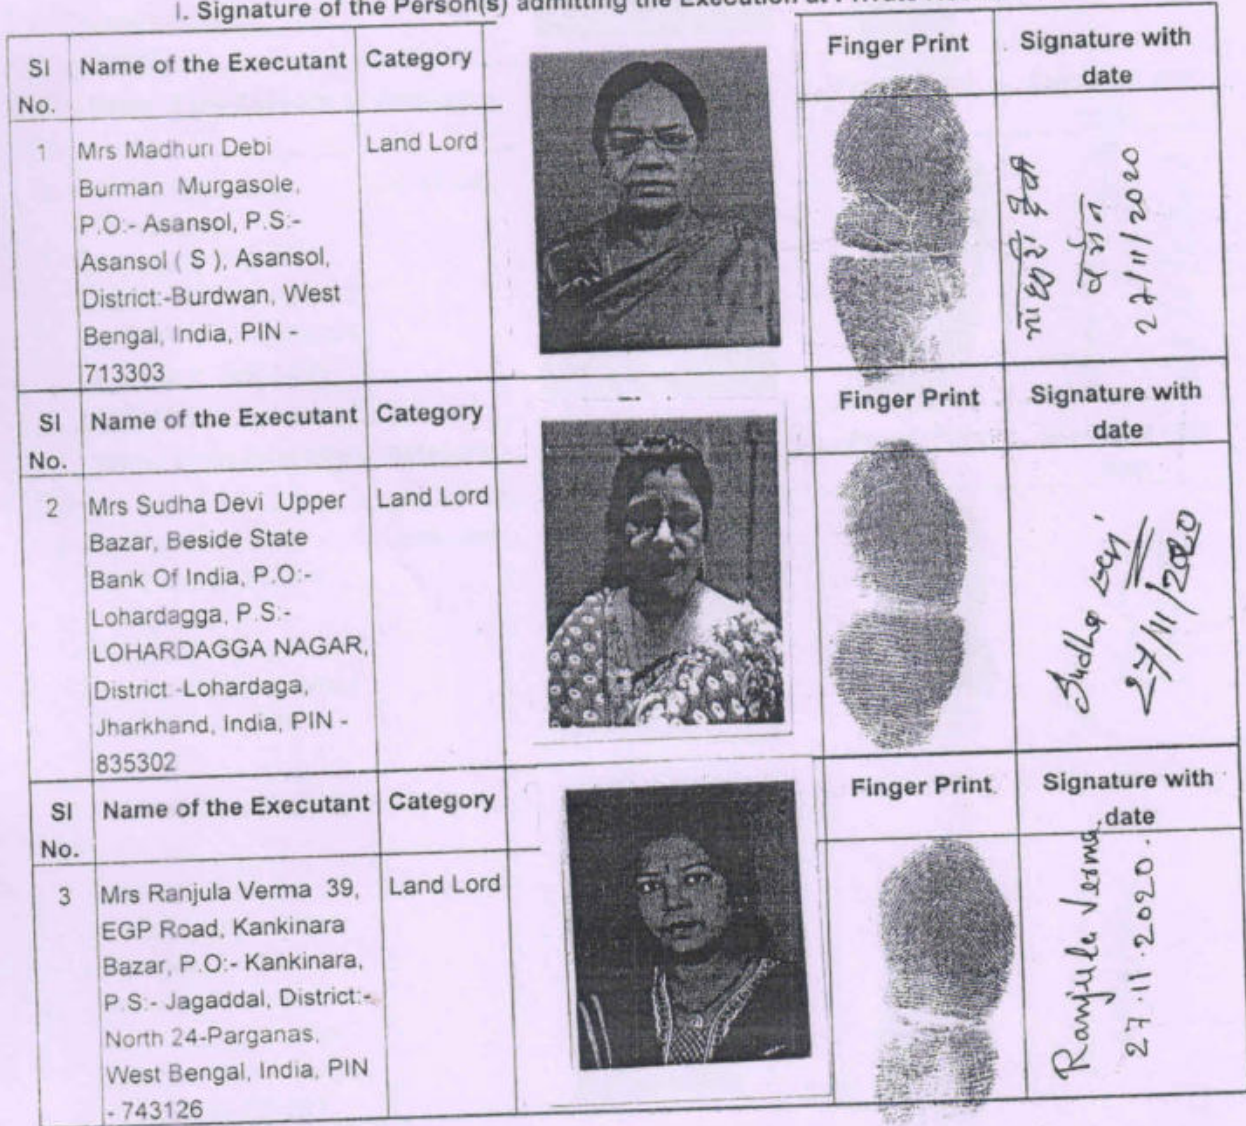 I. Signature of the Person(s) admitting the Execution at Private
Sl No. Name of the Executant Category Finger Print Signature with date
1 Mrs Madhuri Debi Land Lord
Burman Murgasole,
P.O:- Asansol, P.S:-
Asansol ( S ), Asansol,
District:-Burdwan, West
Bengal, India, PIN -
713303
माधुरी देवी
बर्मन
27/11/2020
Sl No. Name of the Executant Category Finger Print Signature with date
2 Mrs Sudha Devi Upper Land Lord
Bazar, Beside State
Bank Of India, P.O:-
Lohardagga, P.S:-
LOHARDAGGA NAGAR,
District:-Lohardaga,
Jharkhand, India, PIN -
835302
Sudha Devi
27/11/2020
Sl No. Name of the Executant Category Finger Print Signature with date
3 Mrs Ranjula Verma 39, Land Lord
EGP Road, Kankinara
Bazar, P.O:- Kankinara,
P.S:- Jagaddal, District:-
North 24-Parganas,
West Bengal, India, PIN
- 743126
Ranjula Verma
27.11.2020.